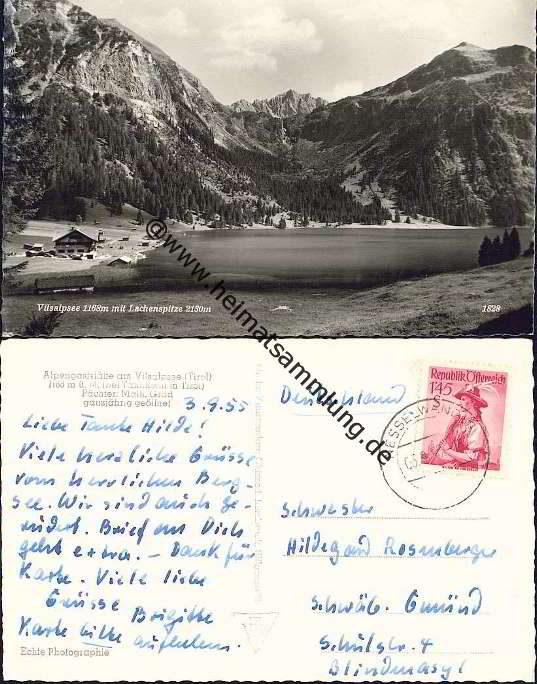 Vilsalpsee 1168m mit Lachenspitze 2130m
1828
@www.heimatsammlung.de
Alpengaststätte am Vilsalpsee (Tirol)
1168 m ü. M. (bei Tannheim in Tirol)
Pächter: Math. Gräd
ganzjährig geöffnet
3.9.55
Liebe Tante Hilde!
Viele herzliche Grüsse
vom herrlichen Berg-
see. Wir sind auch ge-
rudert. Brief an Dich
geht extra. – Dank für
Karte. Viele liebe
Grüsse Brigitte
Karte bitte aufheben.
Echte Photographie
Deutschland
Republik Österreich
1'45
S
NESSELWÄNGLE
Schwester
Hildegard Rosenberger
Schwäb. Gmünd
Schulstr. 4
Blindenasyl